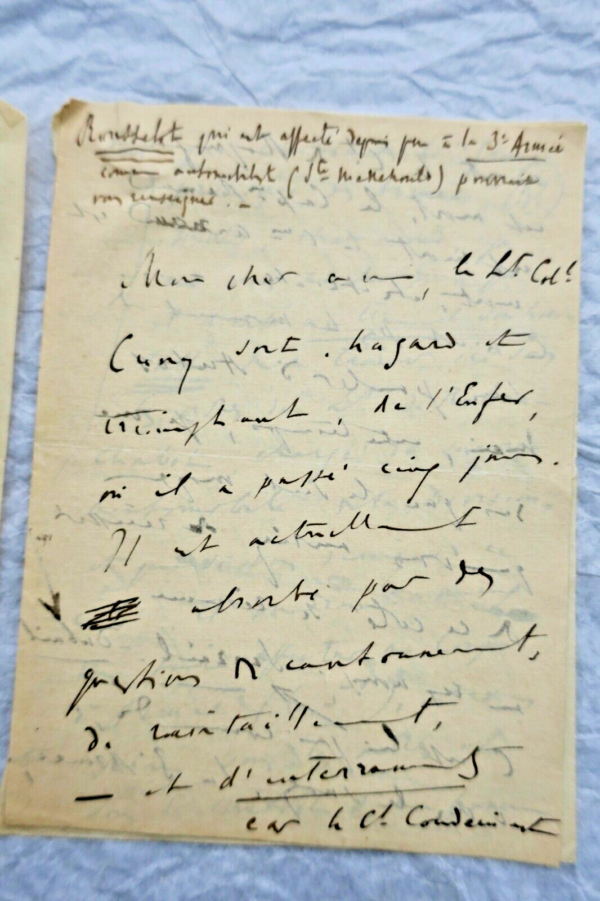 Rousselot qui est affecté depuis peu à la 3e Armée
comme automobilist (Ste Menehould) pourrait
vous renseigner. _
Mon cher ami, le Lt. Coll
Cuny sort, hagard et
triomphant, de l'Enfer,
où il a passé cinq jours.
Il est actuellement
absorbé par des
questions de cantonnement,
de ravitaillement,
— et d'enterrements
car le Ct